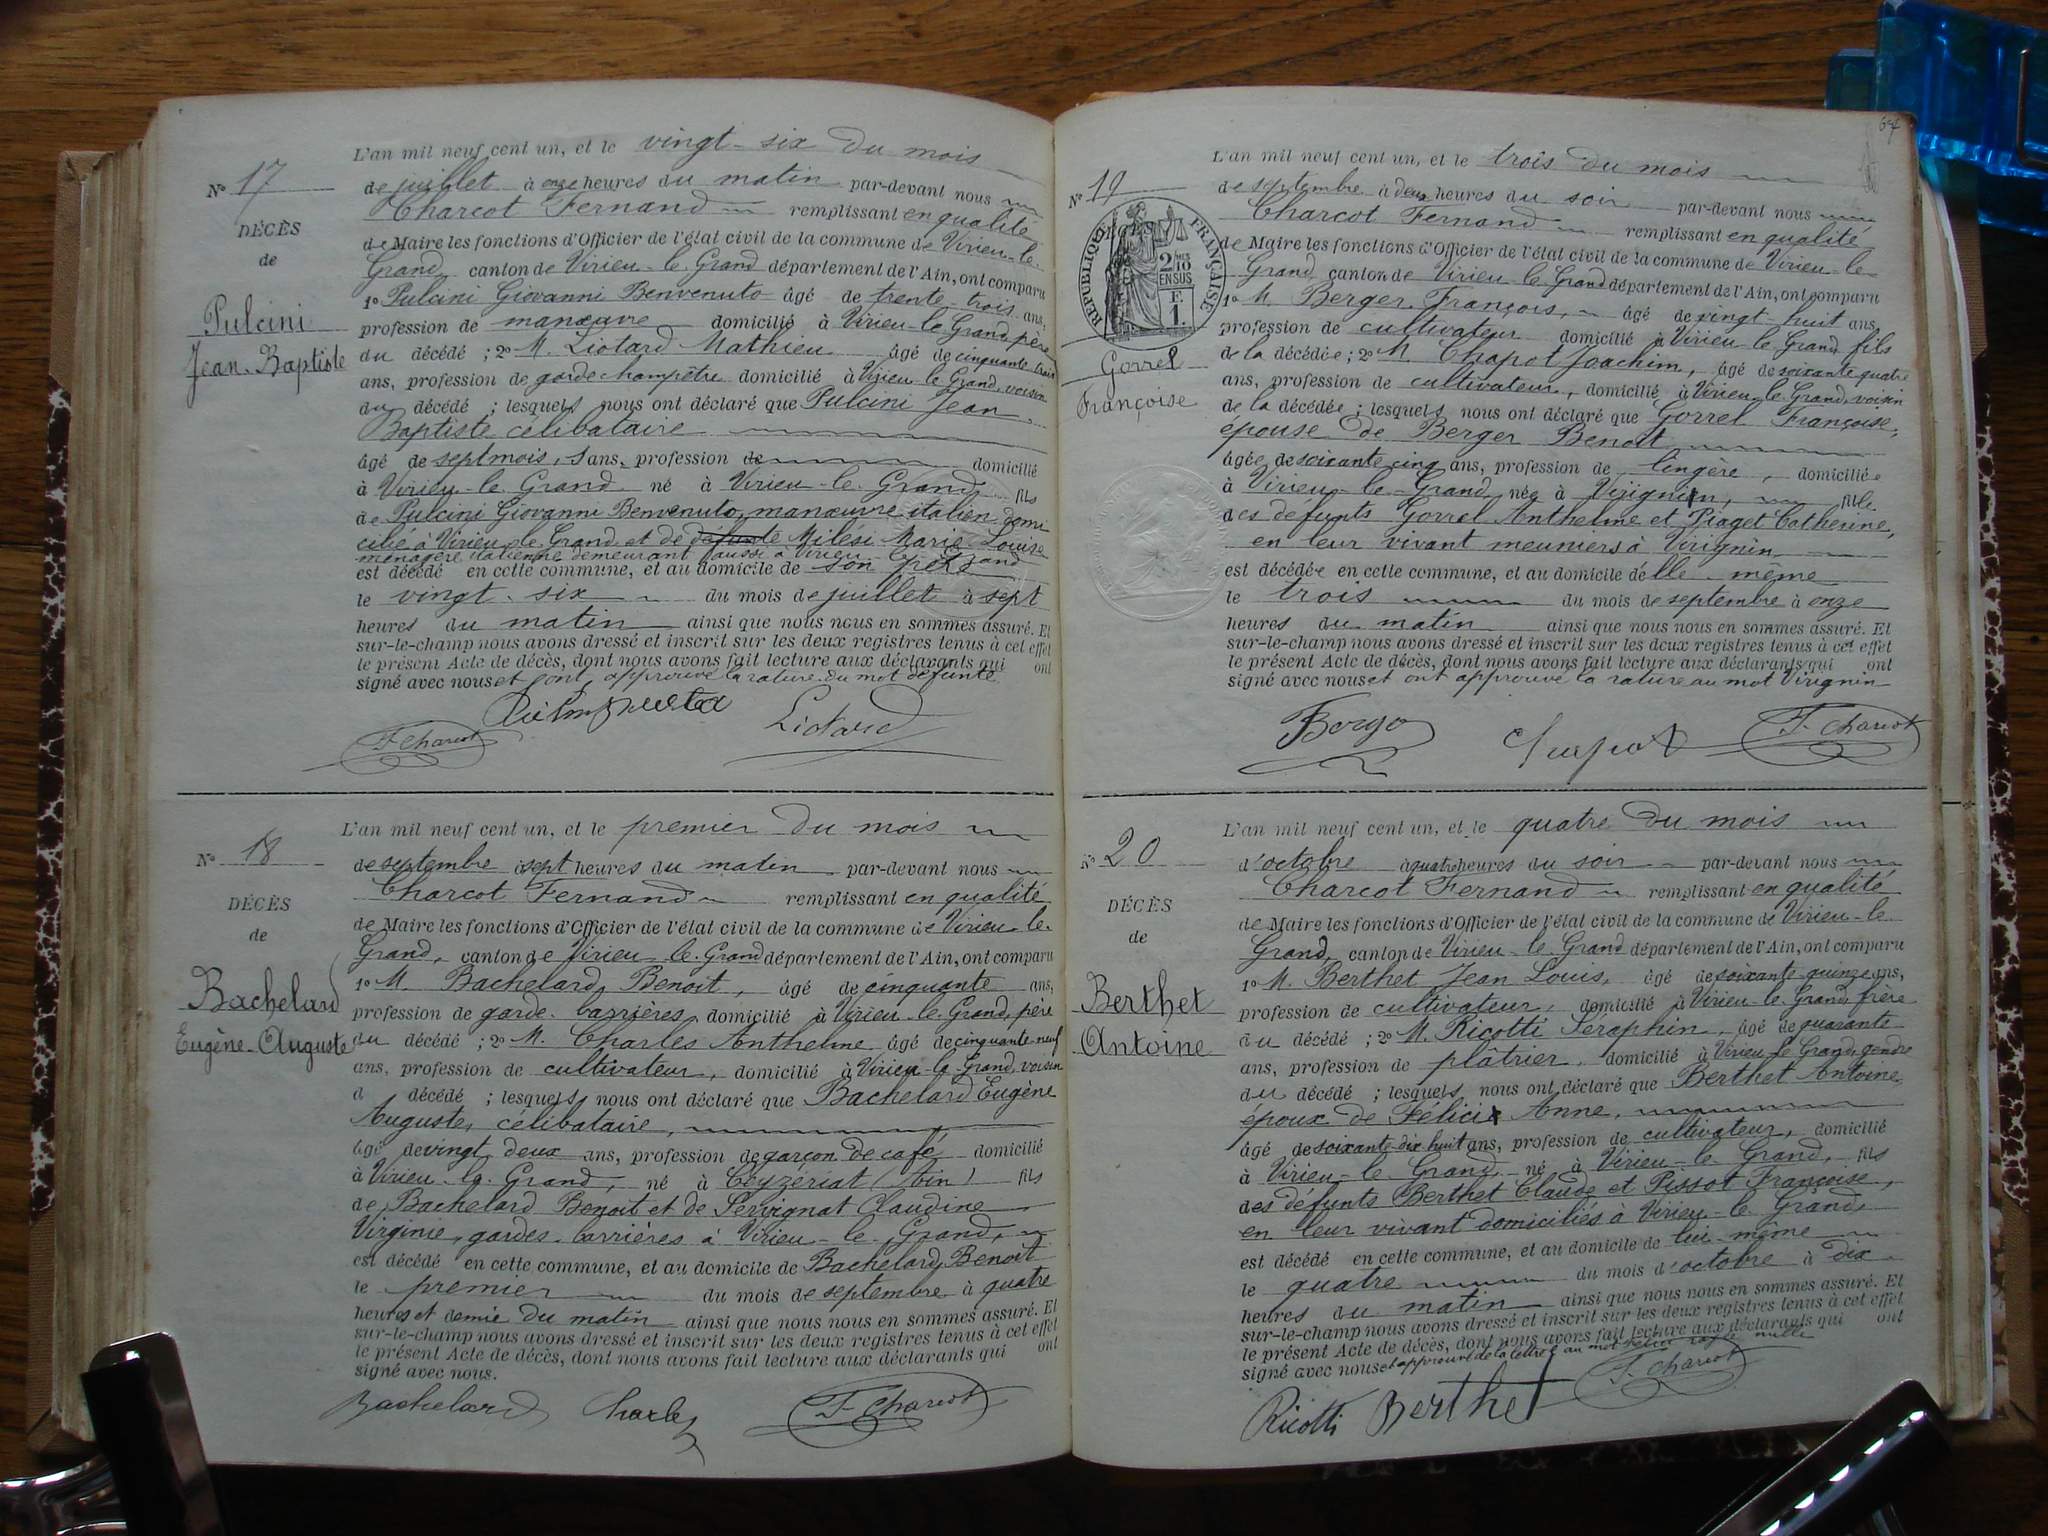 L'an mil neuf cent un, et le vingt-six du mois
N° 17
de juillet à onze heures du matin par-devant nous
Charcot Fernand remplissant en qualité
DÉCÈS
de Maire les fonctions d'Officier de l'état civil de la commune de Virieu-le-
de
Grand, canton de Virieu-le-Grand département de l'Ain, ont comparu
1° Pulcini Giovanni Benvenuto âgé de trente-trois ans,
Pulcini
profession de manœuvre domicilié à Virieu-le-Grand, père
Jean-Baptiste
du décédé ; 2° M. Liotard Mathieu âgé de cinquante trois
ans, profession de garde champêtre domicilié à Virieu-le-Grand, voisin
du décédé ; lesquels nous ont déclaré que Pulcini Jean
Baptiste célibataire
âgé de sept mois, sans profession de domicilié
à Virieu-le-Grand né à Virieu-le-Grand fils
de Pulcini Giovanni Benvenuto, manœuvre italien domi
cilié à Virieu-le-Grand et de défunte Milési Marie Louise
ménagère italienne demeurant aussi à Virieu-le-Grand
est décédé en cette commune, et au domicile de son père
le vingt-six du mois de juillet à sept
heures du matin ainsi que nous nous en sommes assuré. Et
sur-le-champ nous avons dressé et inscrit sur les deux registres tenus à cet effet
le présent Acte de décès, dont nous avons fait lecture aux déclarants qui ont
signé avec nous et ont approuvé la rature du mot défunte
F. Charcot
Liotard
L'an mil neuf cent un, et le premier du mois
N° 18
de septembre à sept heures du matin par-devant nous
Charcot Fernand remplissant en qualité
DÉCÈS
de Maire les fonctions d'Officier de l'état civil de la commune de Virieu-le-
de
Grand, canton de Virieu-le-Grand département de l'Ain, ont comparu
1° M. Bachelard Benoit, âgé de cinquante ans,
Bachelard
profession de garde-barrières domicilié à Virieu-le-Grand, père
Eugène-Auguste
du décédé ; 2° M. Charles Anthelme âgé de cinquante neuf
ans, profession de cultivateur, domicilié à Virieu-le-Grand, voisin
d décédé ; lesquels nous ont déclaré que Bachelard Eugène
Auguste, célibataire,
âgé de vingt deux ans, profession de garçon de café domicilié
à Virieu-le-Grand, né à Ceyzériat (Ain) fils
de Bachelard Benoit et de Servignat Claudine
Virginie, gardes-barrières à Virieu-le-Grand,
est décédé en cette commune, et au domicile de Bachelard Benoit
le premier du mois de septembre à quatre
heures et demie du matin ainsi que nous nous en sommes assuré. Et
sur-le-champ nous avons dressé et inscrit sur les deux registres tenus à cet effet
le présent Acte de décès, dont nous avons fait lecture aux déclarants qui ont
signé avec nous.
Bachelard Charles F. Charcot
67
L'an mil neuf cent un, et le trois du mois
N° 19
de septembre à deux heures du soir par-devant nous
Charcot Fernand remplissant en qualité
RÉPUBLIQUE FRANÇAISE
2/10 EN SUS
F. 1.
de Maire les fonctions d'Officier de l'état civil de la commune de Virieu-le-
Grand canton de Virieu-le-Grand département de l'Ain, ont comparu
1° M. Berger François, âgé de vingt-huit ans,
profession de cultivateur domicilié à Virieu-le-Grand fils
Gorrel
de la décédée ; 2° M. Chapot Joachim, âgé de soixante quatre
Françoise
ans, profession de cultivateur, domicilié à Virieu-le-Grand, voisin
de la décédée ; lesquels nous ont déclaré que Gorrel Françoise,
épouse de Berger Benoit
âgée de soixante cinq ans, profession de lingère, domiciliée
à Virieu-le-Grand née à Virignin, fille
des défunts Gorrel Anthelme et Piaget Catherine,
en leur vivant meuniers à Virignin
est décédée en cette commune, et au domicile d'elle-même
le trois du mois de septembre à onze
heures du matin ainsi que nous nous en sommes assuré. Et
sur-le-champ nous avons dressé et inscrit sur les deux registres tenus à cet effet
le présent Acte de décès, dont nous avons fait lecture aux déclarants qui ont
signé avec nous et ont approuvé la rature au mot Virignin
Berger Chapot F. Charcot
L'an mil neuf cent un, et le quatre du mois
N° 20
d'octobre à quatre heures du soir par-devant nous
Charcot Fernand remplissant en qualité
DÉCÈS
de Maire les fonctions d'Officier de l'état civil de la commune de Virieu-le
de
Grand, canton de Virieu-le-Grand département de l'Ain, ont comparu
1° M. Berthet Jean Louis, âgé de soixante-quinze ans,
Berthet
profession de cultivateur, domicilié à Virieu-le-Grand, frère
Antoine
du décédé ; 2° M. Ricotti Séraphin, âgé de quarante
ans, profession de plâtrier, domicilié à Virieu-le-Grand, gendre
du décédé ; lesquels nous ont déclaré que Berthet Antoine,
époux de Félici Anne,
âgé de soixante-dix-huit ans, profession de cultivateur, domicilié
à Virieu-le-Grand, né à Virieu-le-Grand, fils
des défunts Berthet Claude et Pissot Françoise,
en leur vivant domiciliés à Virieu-le-Grand,
est décédé en cette commune, et au domicile de lui-même
le quatre du mois d'octobre à dix
heures du matin ainsi que nous nous en sommes assuré. Et
sur-le-champ nous avons dressé et inscrit sur les deux registres tenus à cet effet
le présent Acte de décès, dont nous avons fait lecture aux déclarants qui ont
signé avec nous et approuvé de la lettre au mot Félici nulle
Ricotti Berthet F. Charcot